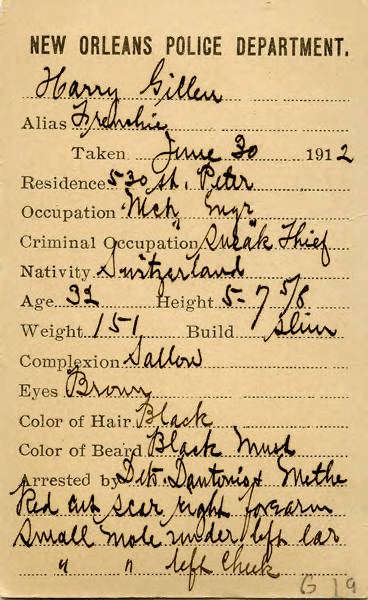 NEW ORLEANS POLICE DEPARTMENT.
Harry Gillen
Alias Frenchie
Taken June 30 1912
Residence 530 St. Peter
Occupation Mch Engr
Criminal Occupation Sneak Thief
Nativity Switzerland
Age 32 Height 5-7 5/8
Weight 151 Build Slim
Complexion Sallow
Eyes Brown
Color of Hair Black
Color of Beard Black Must
Arrested by Dets. Dantonio & Methe
Red cut scar right forearm
Small mole under left ear
" " left cheek
G 19